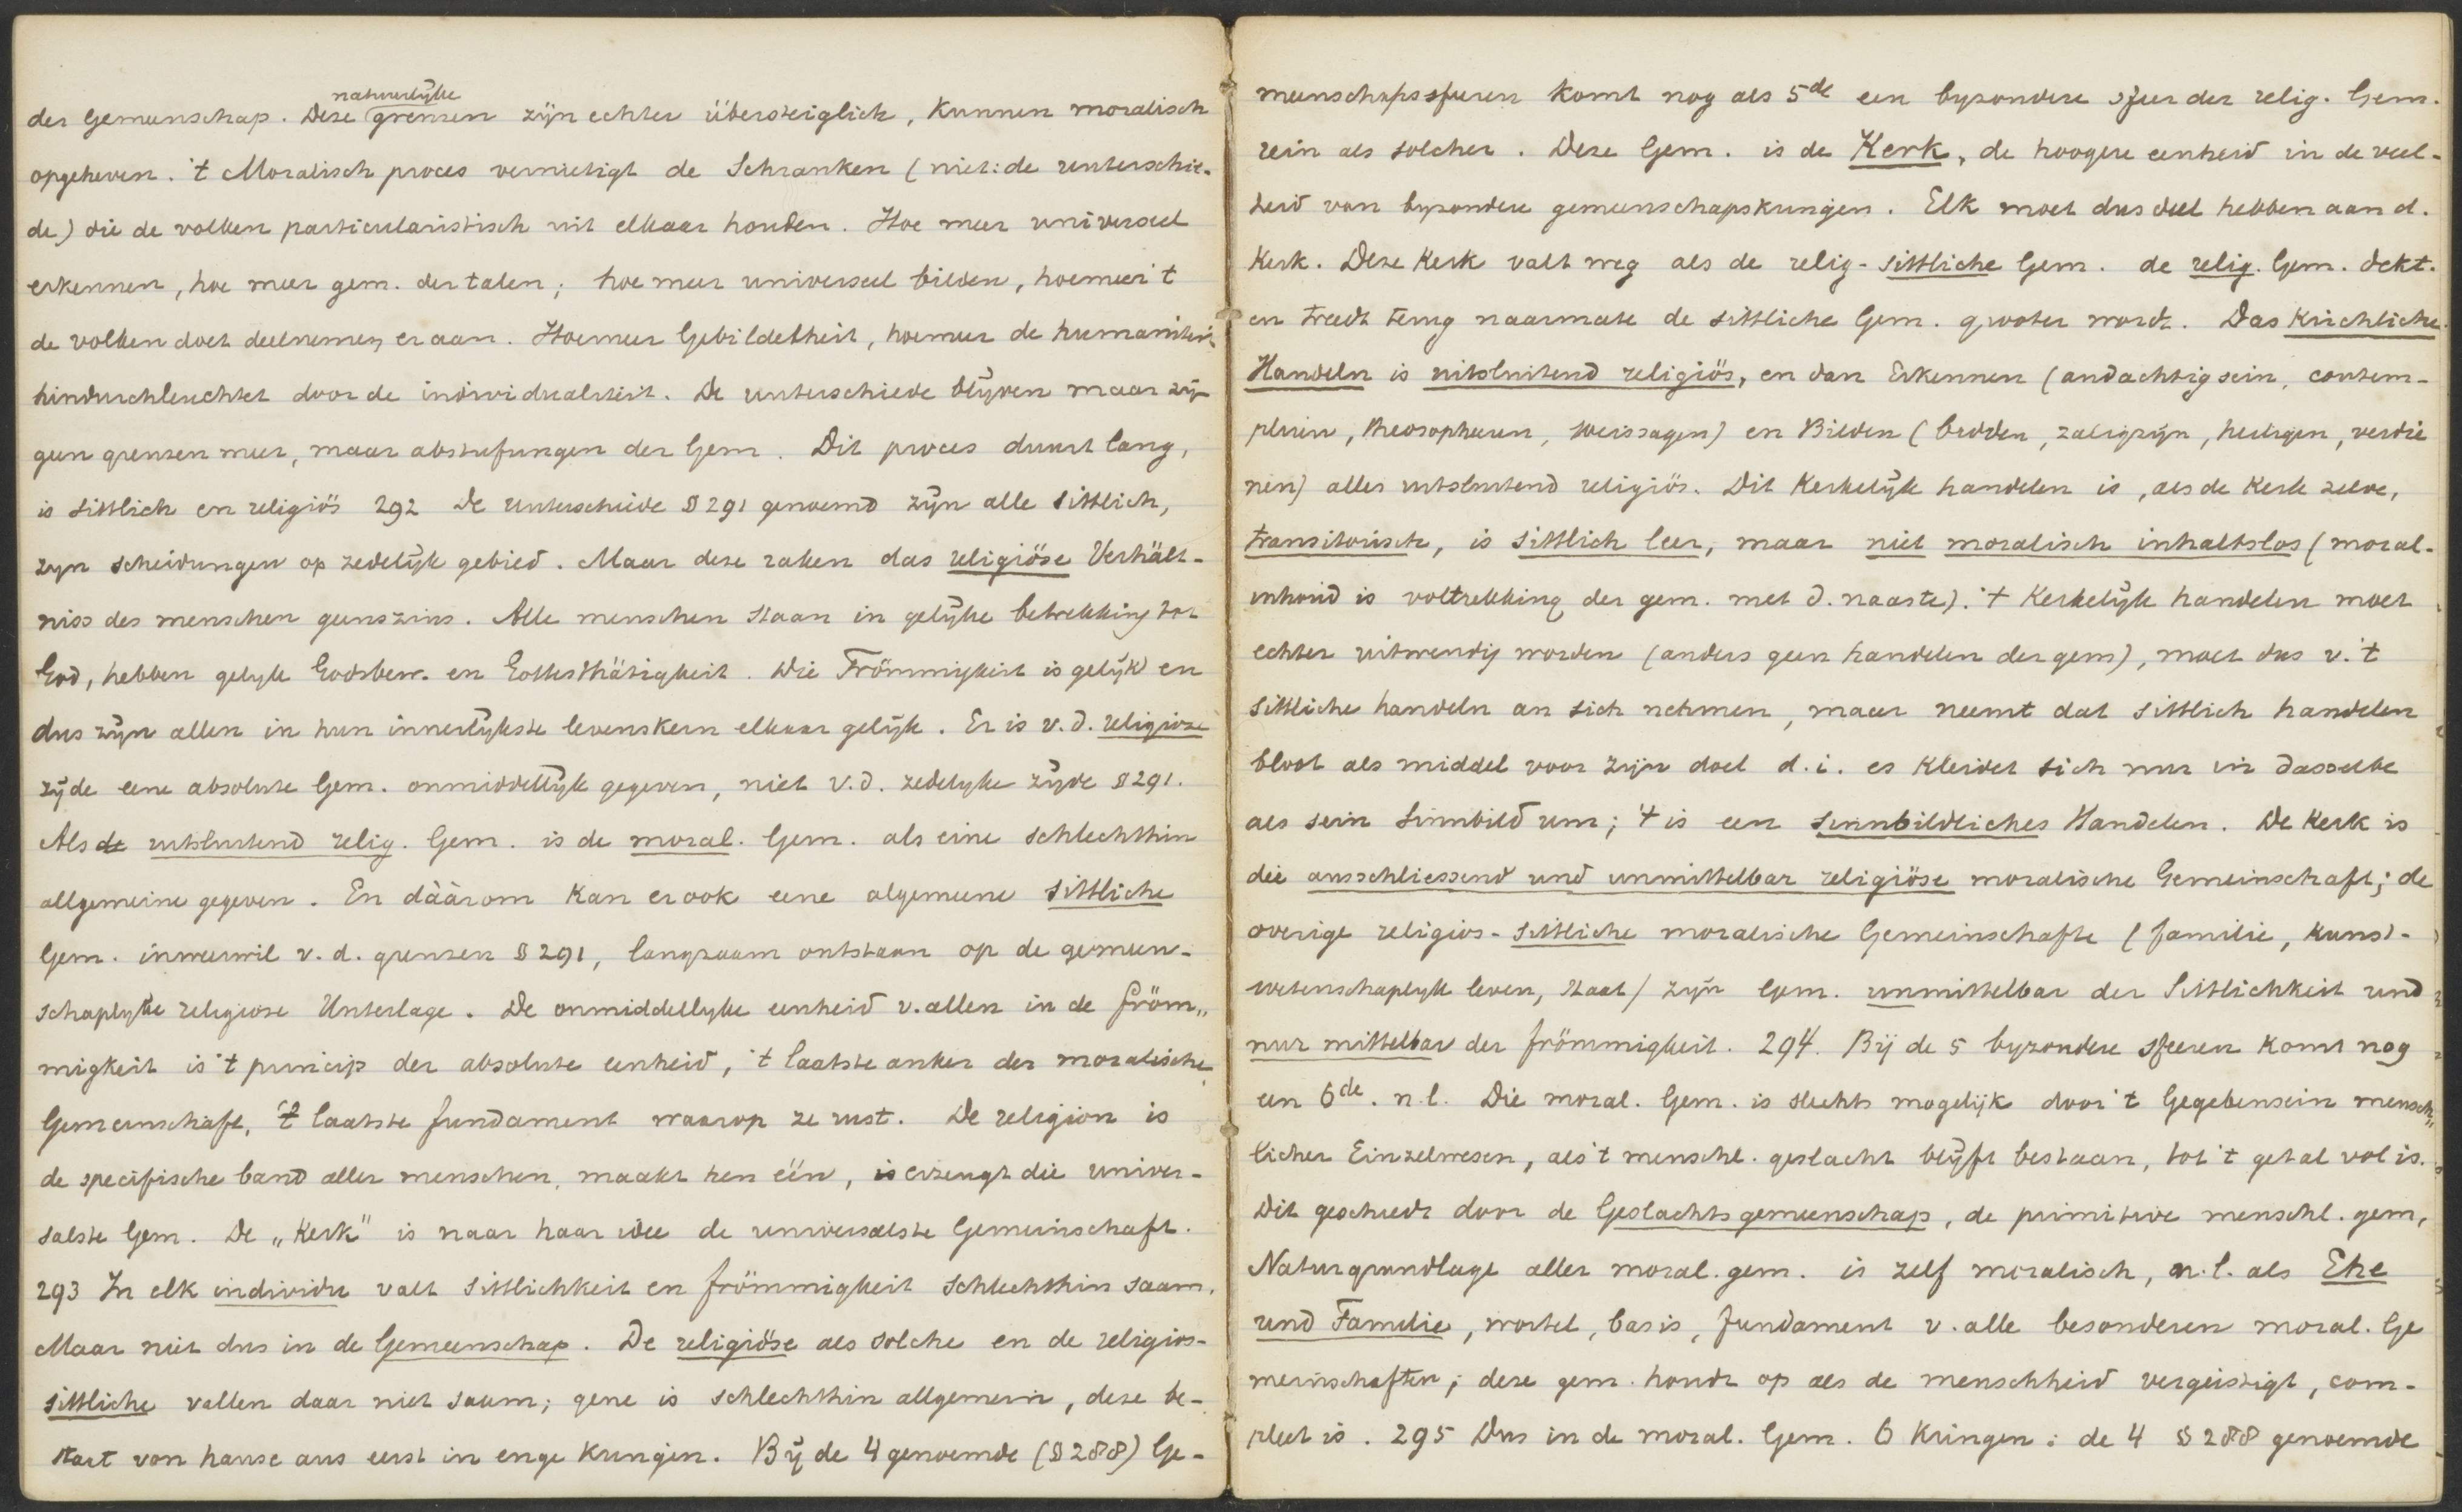 natuurlijke
der Gemeenschap. Deze grenzen zijn echter übersteiglich, kunnen moralisch
opgeheven. 't Moralisch proces vernietigt de Schranken (niet: de unterschie-
de) die de volken particularistisch uit elkaar houden. Hoe meer universeel
erkennen, hoe meer gem. der talen; hoe meer universeel bilden, hoemeer 't
de volken doet deelnemen er aan. Hoemeer Gebildetheit, hoemeer de humaniteit
hindurchleuchtet door de individualiteit. De unterschiede blijven maar zijn
geen grenzen meer, maar abstufungen der Gem. Dit proces duurt lang,
is sittlich en religiös 292 De unterschiede § 291 genoemd zijn alle sittlich,
zijn scheidungen op zedelijk gebied. Maar deze raken das religiöse Verhält-
niss des menschen geenszins. Alle menschen staan in gelijke betrekking tot
God, hebben gelijk Godsbew. en Gottesthätigkeit. Die Frömmigkeit is gelijk en
dus zijn allen in hun innerlijkste levenskern elkaar gelijk. Er is v.d. religiose
zijde eene absolute Gem. onmiddellijk gegeven, niet v.d. zedelijke zijde § 291.
Als de uitsluitend relig. Gem. is de moral. Gem. als eine schlechthin
allgemeine gegeven. En dààrom kan er ook eene algemeene sittliche
Gem. inweerwil v.d. grenzen § 291, langzaam ontstaan op de gemeen-
schaplijke religiose Unterlage. De onmiddellijke eenheid v. allen in de fröm„
migkeit is 't princip der absolute eenheid, 't laatste anker der moralische
Gemeinschaft, 't laatste fundament waarop ze rust. De religion is
de specifische band aller menschen, maakt hen één, erzeugt die univer-
salste Gem. De „Kerk" is naar haar idee de universalste Gemeinschaft.
293 In elk individu valt sittlichkeit en frömmigkeit schlechthin saam.
Maar niet dus in de Gemeenschap. De religiöse als solche en de religios-
sittliche vallen daar niet saam; gene is schlechthin allgemein, deze be-
staat von hause aus eerst in enge kringen. Bij de 4 genoemde (§ 288) Ge-
meenschapssferen komt nog als 5de een byzondere sfeer der relig. Gem.
rein als solcher. Deze Gem. is de Kerk, de hoogere eenheid in de veel-
heid van byzondere gemeenschapskringen. Elk moet dus deel hebben aan d.
Kerk. Deze Kerk valt weg als de relig-sittliche Gem. de relig. Gem. dekt.
en treedt terug naarmate de sittliche Gem. grooter wordt. Das Kirchliche
Handeln is uitsluitend religiös, en dan Erkennen (andachtig sein, contem-
pleren, theosopheren, weissagen) en Bilden (bidden, zaligzijn, heiligen, verdie
nen) alles uitsluitend religiös. Dit Kerkelijk handelen is, als de Kerk zelve,
transitorisch, is sittlich leer, maar niet moralisch inhaltslos (moral-
inhoud is voltrekking der gem. met d. naaste). 't Kerkelijk handelen moet
echter uitwendig worden (anders geen handelen der gem), moet dus v. 't
sittliche handeln an sich nehmen, maar neemt dat sittlich handelen
bloot als middel voor zijn doel d.i. es kleidet sich nur in dasselbe
als sein Sinnbild um; 't is een sinnbildliches Handelen. De Kerk is
die ausschliessend und unmittelbar religiöse moralische Gemeinschaft; de
overige religios-sittliche moralische Gemeinschafte (familie, kunst-
wetenschaplijk leven, staat) zijn Gem. unmittelbar der Sittlichkeit und
nur mittelbar der frömmigkeit. 294. Bij de 5 byzondere sfeeren komt nog
een 6de. n.l. Die moral. Gem. is slechts mogelijk door 't Gegebensein mensch„
licher Einzelwesen, als 't menschl. geslacht blijft bestaan, tot 't getal vol is.
Dit geschiedt door de Geslachtsgemeenschap, de primitive menschl. gem,
Naturgrundlage aller moral. gem. is zelf moralisch, n.l. als Ehe
und Familie, wortel, basis, fundament v. alle besonderen moral. Ge
meinschaften; deze gem. houdt op als de menschheid vergeistigt, com-
pleet is. 295 Dus in de moral. Gem. 6 Kringen: de 4 § 288 genoemde